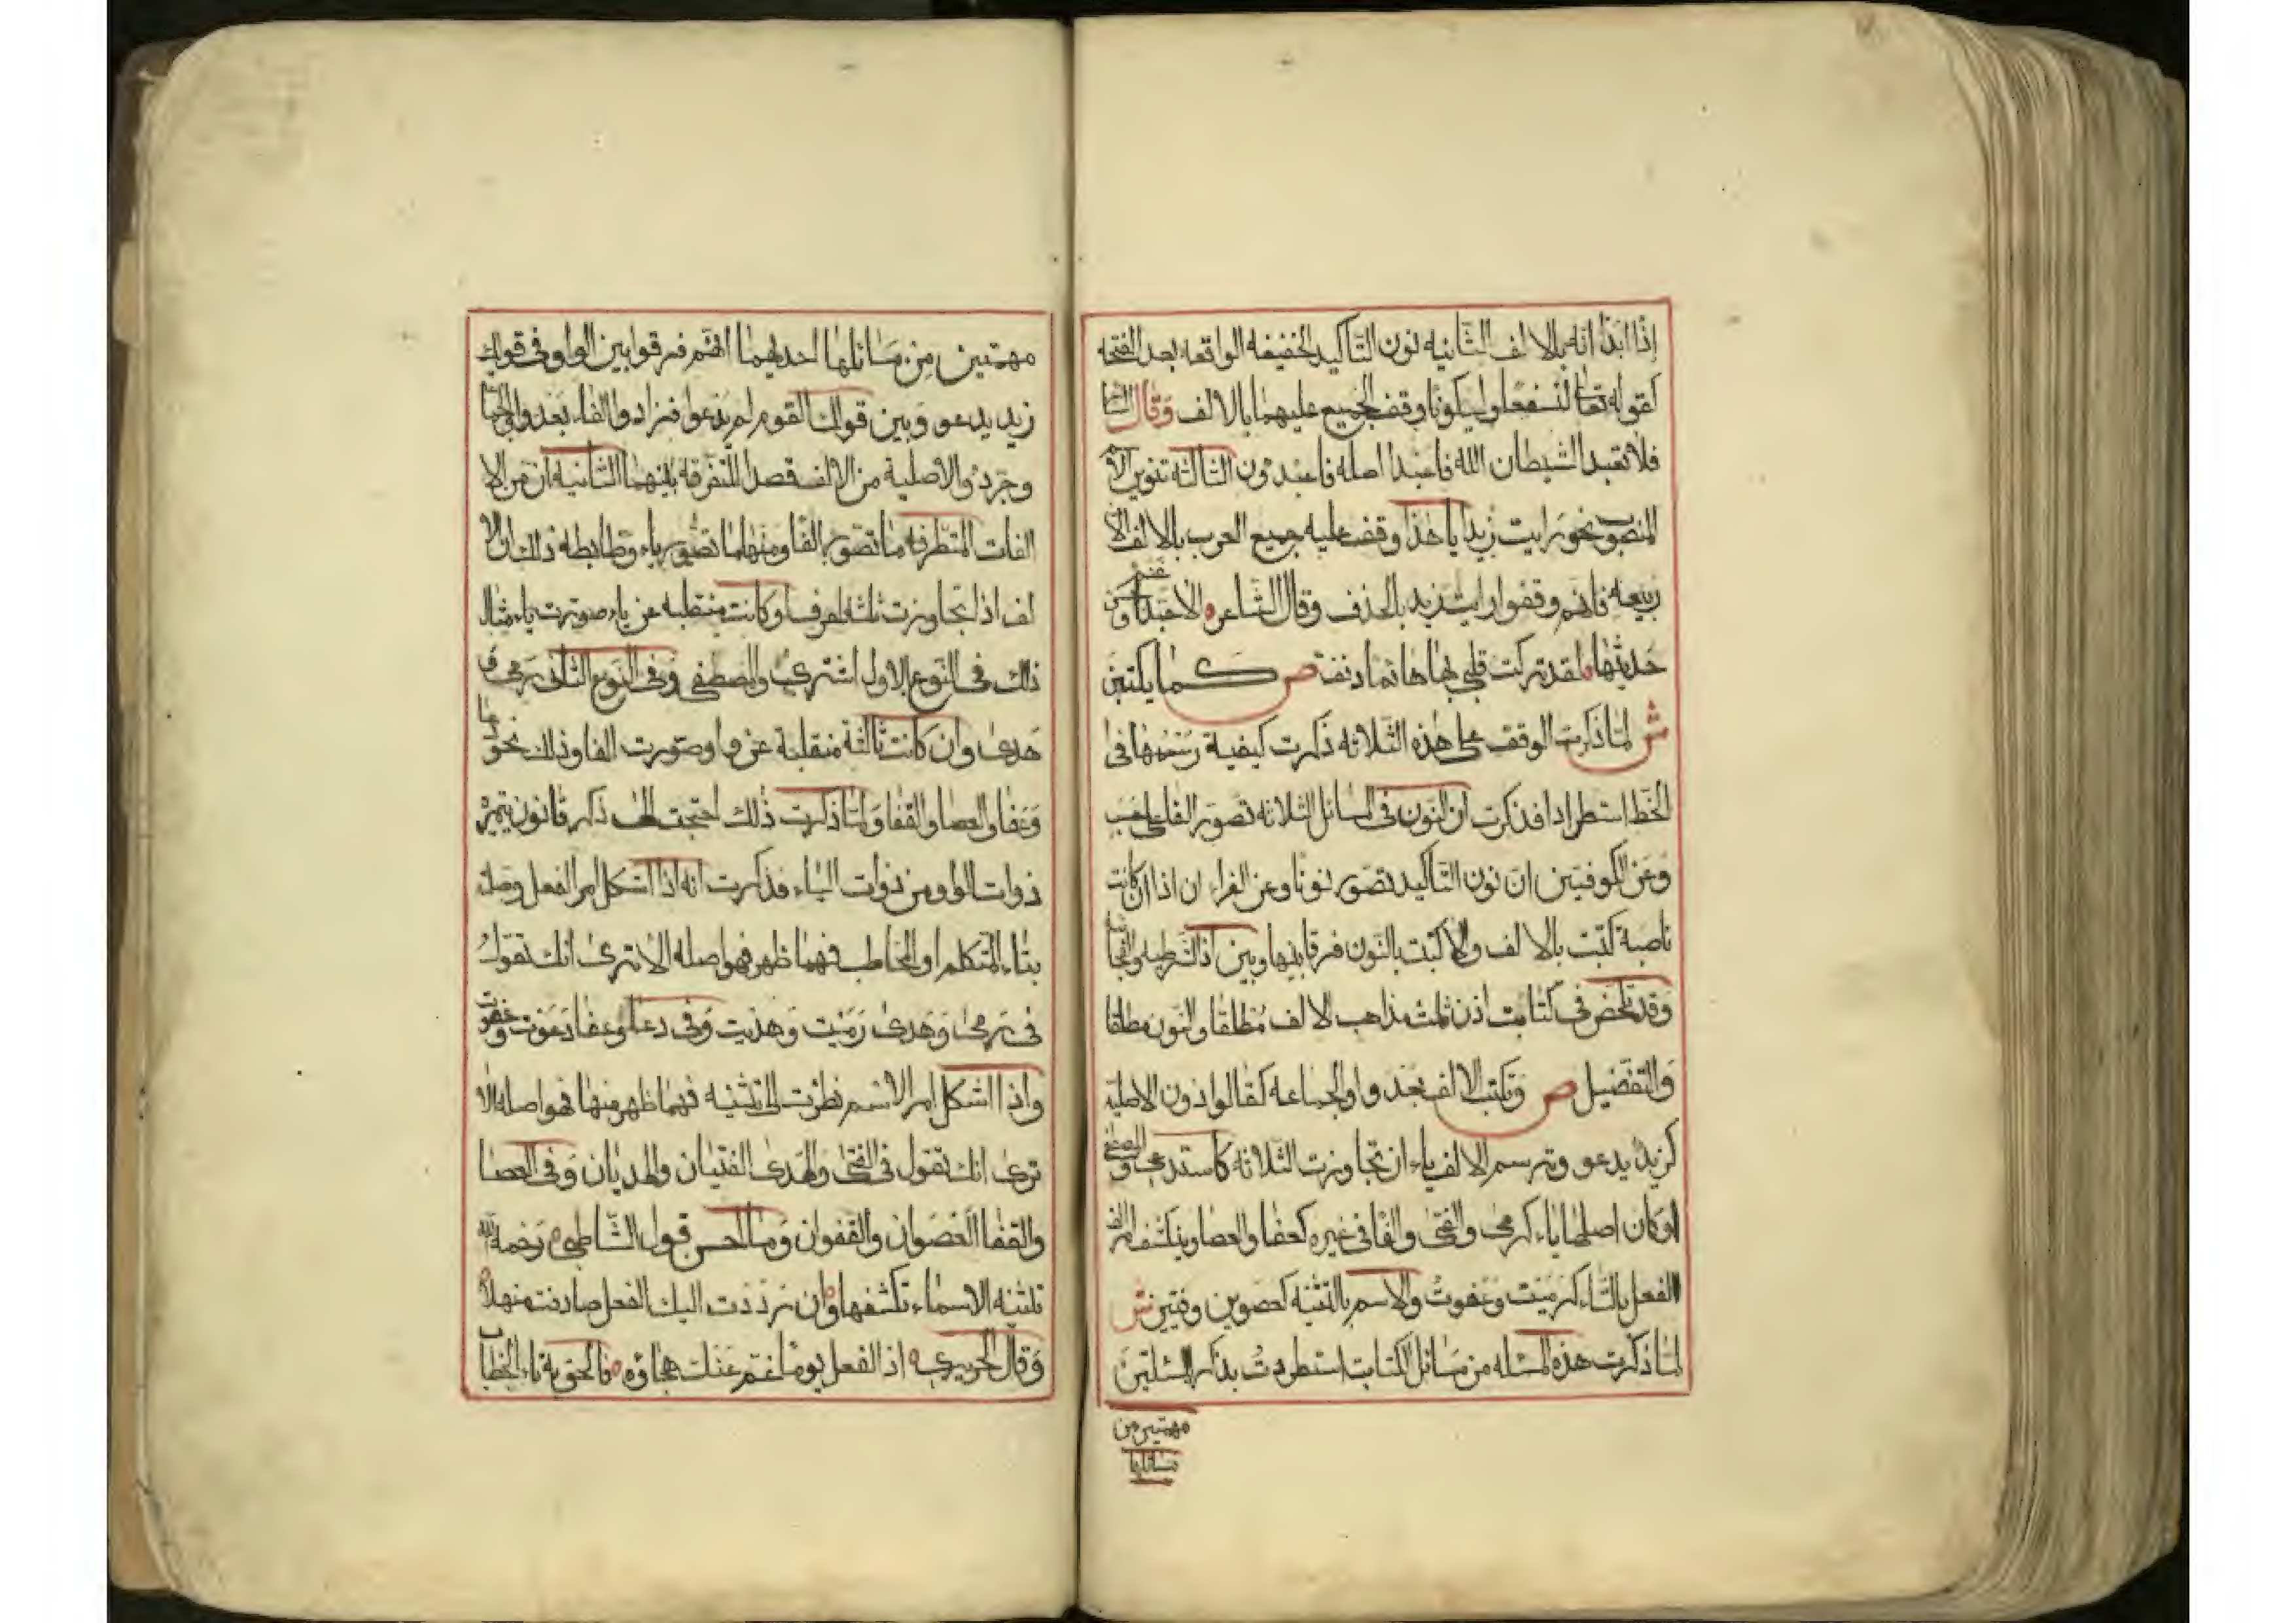 إذا ابدا انه بالالف الثانيه نون التأكيد الخفيفه الواقعه بعد الفتحه
كقوله تعالى لنسفعا وليكونا وقف الجميع عليهما بالالف وقال الشاعر
فلا تعبد الشيطان الله فاعبدا اصله فاعبدون الثالثة تنوين الاسم
المنصوب نحو رايت زيدا يا هذا وقف عليه جميع العرب بالالف الا
ربيعه فانهم وقفوا رايت زيد بالحذف وقال الشاعر الا حبذا غنم وحسن
حديثها لقد تركت قلبي بها هائما دنف ص كما يكتبن
ش لما ذكرت الوقف على هذه الثلاثه ذكرت كيفية رسمها في
الخط استطرادا فذكرت ان النون في المسائل الثلاثه تصور الفا على حسب
وعن الكوفيين ان نون التأكيد تصور نونا وعن الفراء ان اذا ان كانت
ناصبة كتبت بالالف والا كتبت بالنون فرقا بينها وبين اذا الشرطيه والفجائيه
وقد تلخص في كتابت اذن ثلث مذاهب الالف مطلقا والنون مطلقا
والتفضيل ص وتكتب الالف بعد واو الجماعه كقالوا دون الاصليه
كزيد يدعو وترسم الالف ياء ان تجاوزت الثلاثه كاستدعى والمصطفى
او كان اصلها ياء كرمى والفتى والفا في غيره كعفا والعصا وينكشف امر الف
الفعل بالتاء كرميت وعفوت والاسم بالتثنيه كعصوين وفتيين ش
لما ذكرت هذه المسئله من مسائل الكتابت استطردت بذكر مسئلتين
مهمتين من
مسائلها
مهمتين من مسائلها احديهما انهم فرقوا بين الواو في قولك
زيد يدعو وبين قولك القوم لم يدعوا فزادوا الفاء بعد واو الجماعة
وجردوا الاصلية من الالف قصدا للتفرقه بينهما الثانيه ان من الا
الفات المتطرفه ما تصور الفا ومنها ما تصور ياء وضابطه ذلك ان الا
لف اذا تجاوزت ثلثه احرف او كانت منقلبه عن ياء صورت ياء مثال
ذلك في النوع الاول اشترى والمصطفى وفي النوع الثاني رمى و
هدى وان كانت ثالثة منقلبة عن واو صورت الفا وذلك نحو دعا
وعفا والعصا والقفا ولما ذكرت ذلك احتجت الى ذكر قانون يتميز
ذوات الواو من ذوات الياء فذكرت انه اذا اشكل امر الفعل وصله
بتاء المتكلم او المخاطب فهما ظهر فهو اصله الا ترى انك تقول
في رمى وهدى رميت وهديت وفي دعا وعفا دعوت وعفوت
واذا اشكل امر الاسم نظرت الى تثنيه فهما ظهر منها فهو اصله الا
ترى انك تقول في الفتى والهدى الفتيان والهديان وفي العصا
والقفا العصوان والقفوان وما احسن قول الشاطبي رحمه الله
تثنيه الاسماء تكشفها وان رددت اليك الفعل صادفت منهلا
وقال الحريري اذا الفعل يوما غم عنك هجاؤه فالحق به تاء الخطاب